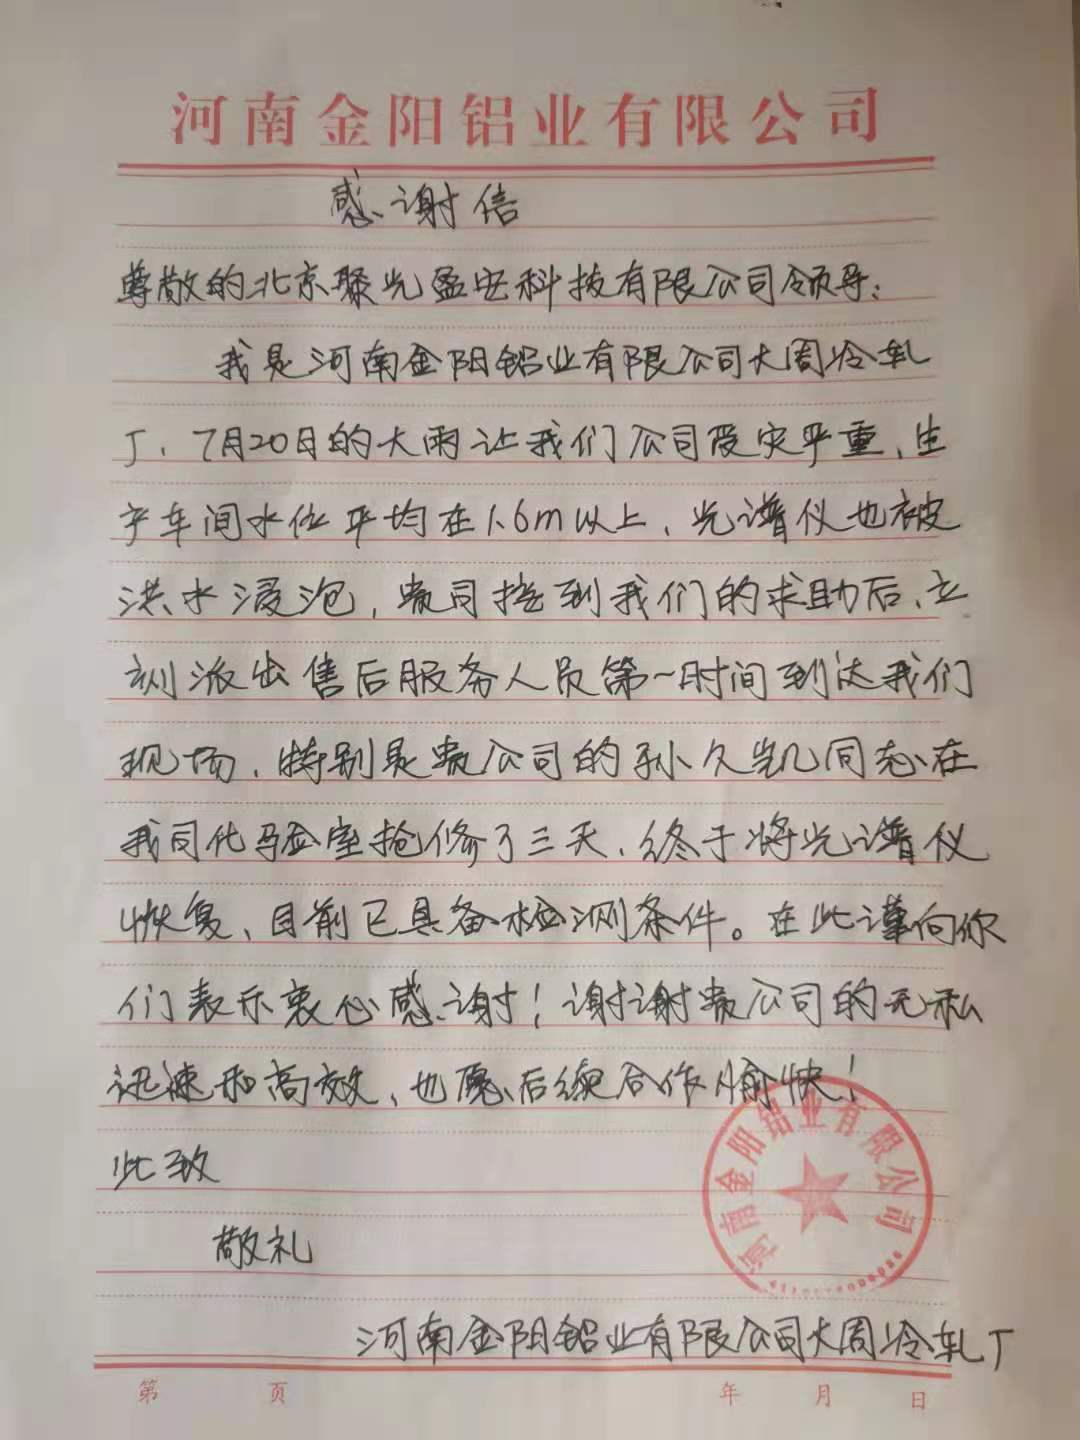 河南金阳铝业有限公司
感谢信
尊敬的北京聚光盈安科技有限公司领导：
我是河南金阳铝业有限公司大周冷轧
厂，7月20日的大雨让我们公司受灾严重，生
产车间水位平均在1.6m以上，光谱仪也被
洪水浸泡，贵司接到我们的求助后，立
刻派出售后服务人员第一时间到达我们
现场，特别是贵公司的孙久凯同志在
我司化验室抢修了三天，终于将光谱仪
恢复，目前已具备检测条件。在此谨向你
们表示衷心感谢！谢谢贵公司的无私
迅速和高效，也愿后续合作愉快！
此致
敬礼
河南金阳铝业有限公司
河南金阳铝业有限公司大周冷轧厂
第 页 年 月 日